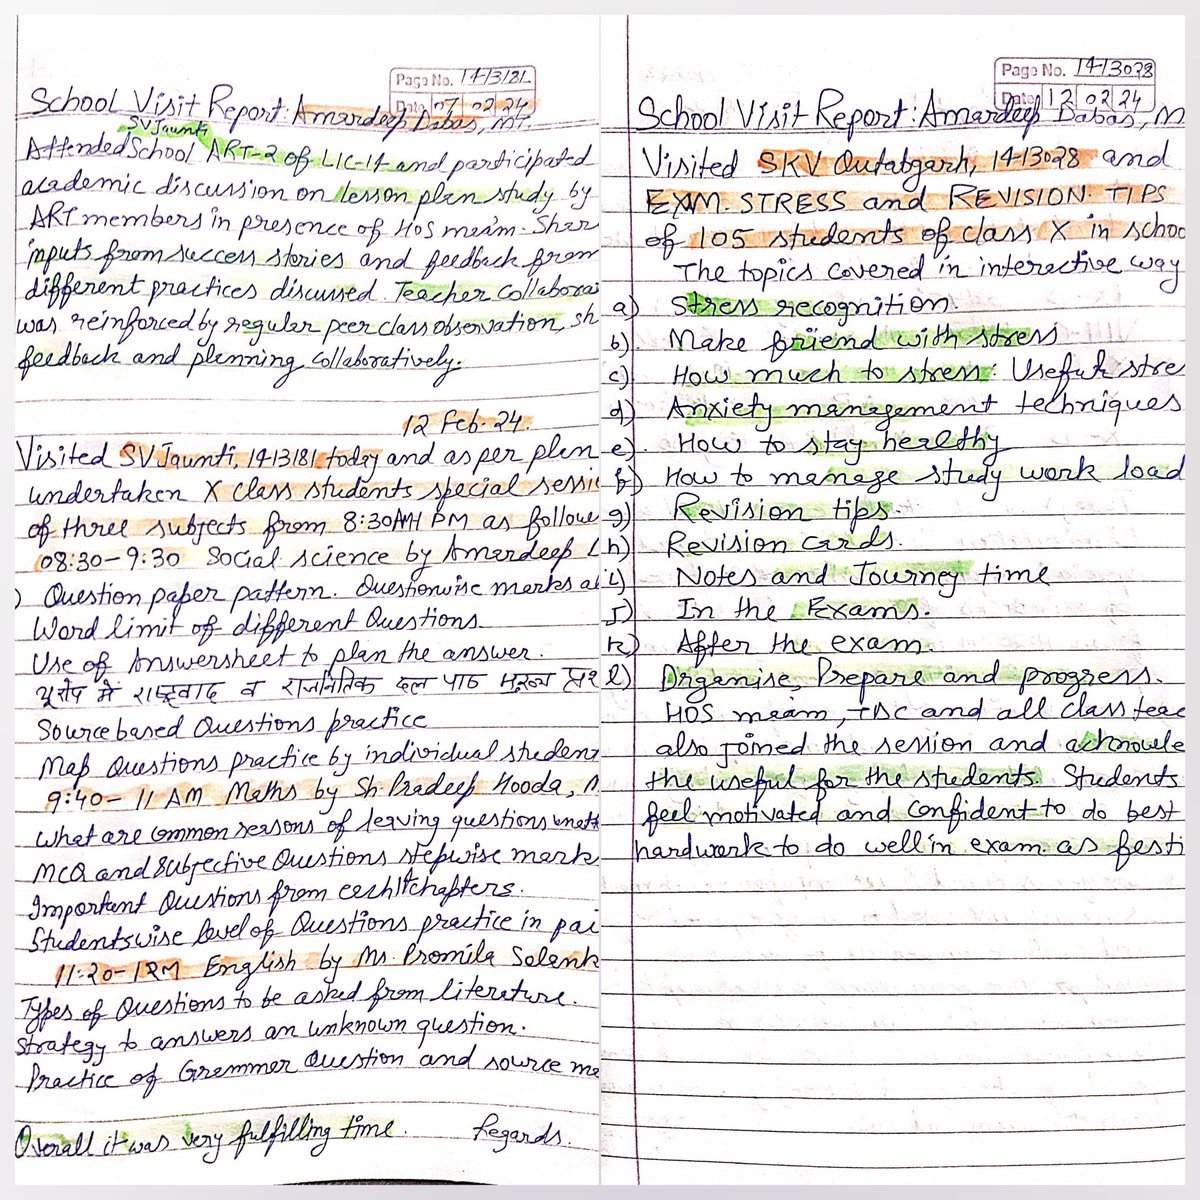 Page No. 1413181
Date 07 02 24
School Visit Report: Amardeep Dabas, MT.
SV Jaunti
Attended School ART-2 of LIC-14 and participated
academic discussion on lesson plan study by
ART members in presence of HoS meám. Sher
inputs from success stories and feedback from
different practices discussed. Teacher collabora
was reinforced by regular peer class observation, sh
feedback and plenning collaboratively.
12 Feb. 24.
Visited SV Jaunti, 1413181 today and as per plen
undertaken X class students special sessi
of three subjects from 8:30AM PM as followe
08:30-9:30 Social science by Amardeep
) Question paper pattern. Questionwise marks al
Word limit of different Questions.
Use of Answersheet to plan the answer.
यूरोप में राष्ट्रवाद व राजनितिक दल पाठ मुख्य
Source based Questions practice
Map Questions practice by individual student
9:40-11 AM Maths by Sh. Pradeep Hooda,
What are common reasons of leaving questions
MCQ and Subjective Questions stepwise mark
Important Questions from eech 14 chapters.
Studentswise level of Questions practice in pai
11:20-1PM English by Ms. Promila Solenk
Types of Questions to be asked from literature.
Strategy to answers an unknown question.
Practice of Gremmer Question and source me
Overall it was very fulfilling time. Regards.
Page No. 1413028
Date 12 02 24
School Visit Report: Amardeep Dabas, M
Visited SKV Qutabgarh, 1413028 and
EXAM. STRESS and REVISION. TIPS
of 105 students of class X in schoo
The topics covered in interactive way
a) Stress recognition.
b) Make friend with stress
c) How much to stress: Useful stre
d) Anxiety management techniques
e) How to stay healthy
f) How to manage study work load
g) Revision tips.
h) Revision cards.
i) Notes and Journey time
j) In the Exams.
k) After the exam.
l) Organise, Prepare and progress.
HOS meám, TDC and all class teac
also joined the session and acknowle
the useful for the students. Students
feel motivated and confident to do best
hardwork to do well in exam as festi